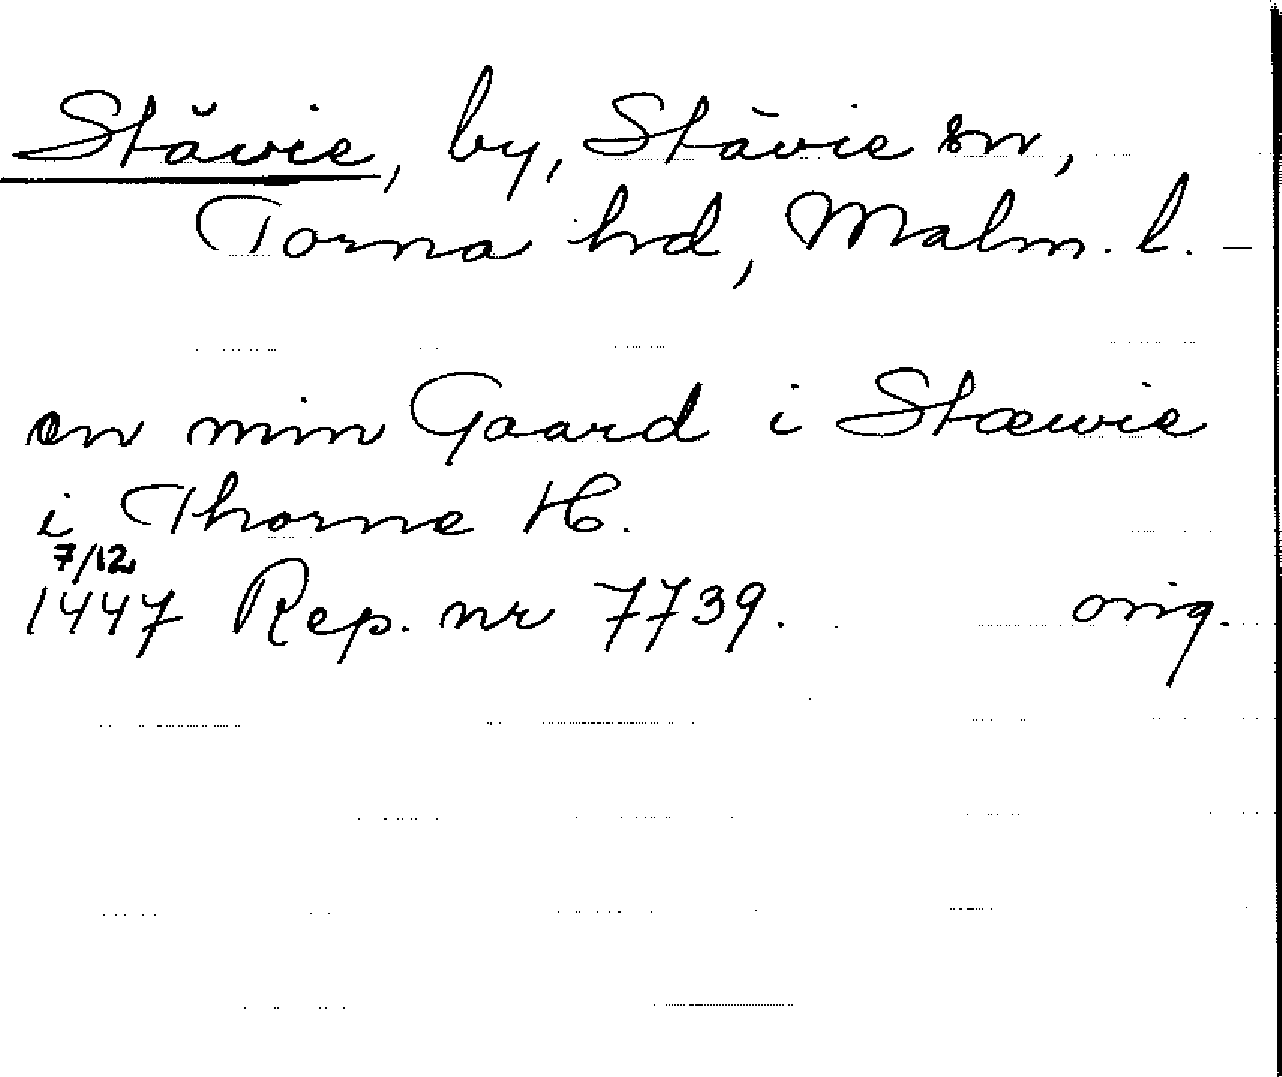 Stävie, by, Stävie sn,
Torna hd, Malm. l. –
en min Gaard i Stæwie
i Thorne H.
7/12
1447 Rep. nr 7739. orig.